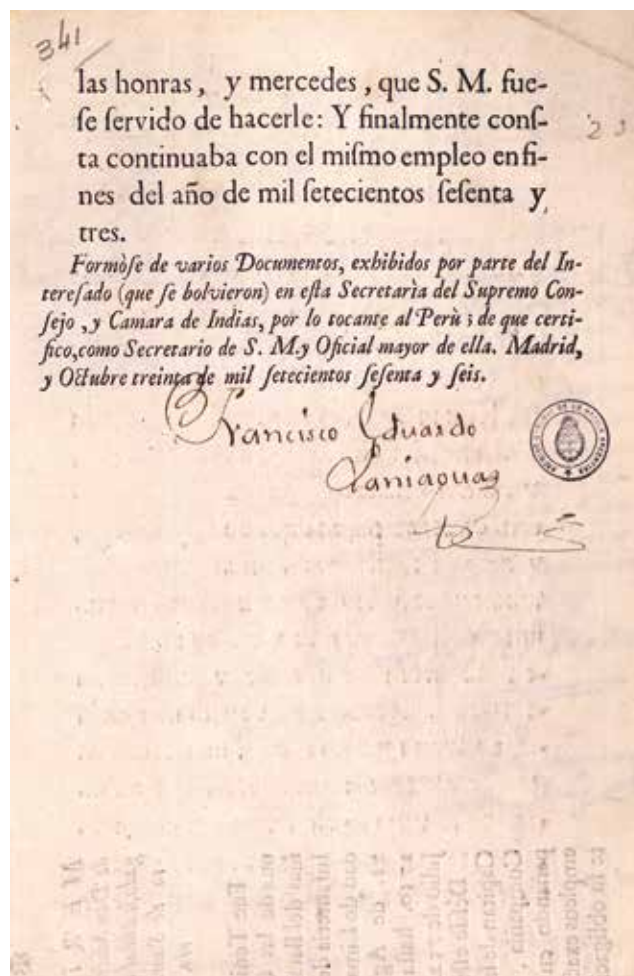 341
las honras, y mercedes, que S. M. fue-
ſe ſervido de hacerle: Y finalmente conſ-
ta continuaba con el miſmo empleo en fi-
nes del año de mil ſetecientos ſeſenta y
tres.
Formòſe de varios Documentos, exhibidos por parte del In-
tereſado (que ſe bolvieron) en eſta Secretarìa del Supremo Con-
ſejo, y Camara de Indias, por lo tocante al Perù; de que certi-
fico, como Secretario de S. M. y Oficial mayor de ella. Madrid,
y Octubre treinta de mil ſetecientos ſeſenta y ſeis.
Francisco Eduardo
Paniagua